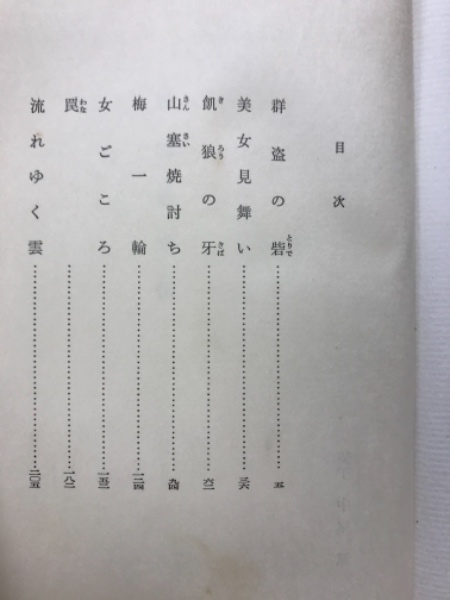 目次
群盗の砦とりで……五
美女見舞い……三六
飢き狼ろうの牙きば……六二
山さん塞さい焼討ち……九四
梅一輪……一二四
女ごころ……一五二
罠わな……一八二
流れゆく雲……二〇五